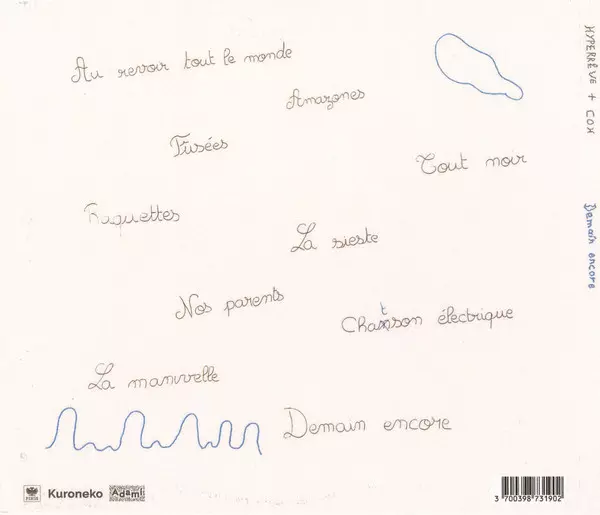 Au revoir tout le monde
Amazones
Fusées
Tout noir
Raquettes
La sieste
Nos parents
Chatson électrique
La manivelle
Demain encore
HYPERRÊVE + COH
Demain encore
Kuroneko
Adami
3 700398 731902